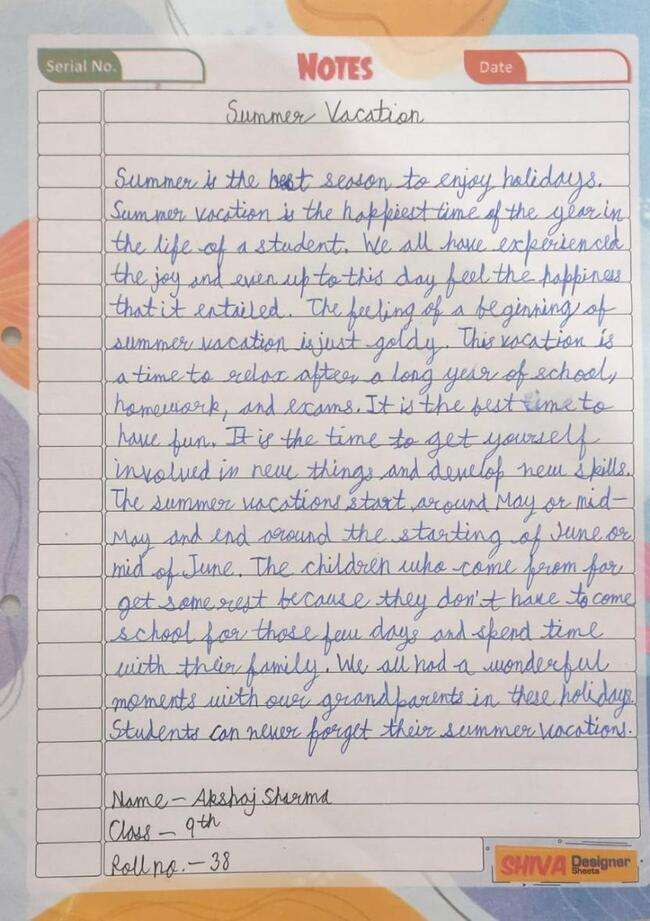 Serial No.
NOTES
Date
Summer Vacation
Summer is the best season to enjoy holidays.
Summer vacation is the happiest time of the year in
the life of a student. We all have experienced
the joy and even up to this day feel the happiness
that it entailed. The feeling of a beginning of
summer vacation is just goldy. This vacation is
a time to relax after a long year of school,
homework, and exams. It is the best time to
have fun. It is the time to get yourself
involved in new things and develop new skills.
The summer vacations start around May or mid-
May and end around the starting of June or
mid of June. The children who come from far
get some rest because they don't have to come
school for those few days and spend time
with their family. We all had a wonderful
moments with our grandparents in these holidays.
Students can never forget their summer vacations.
Name - Akshaj Sharma
Class - 9th
Roll no. - 38
SHIVA Designer
Sheets